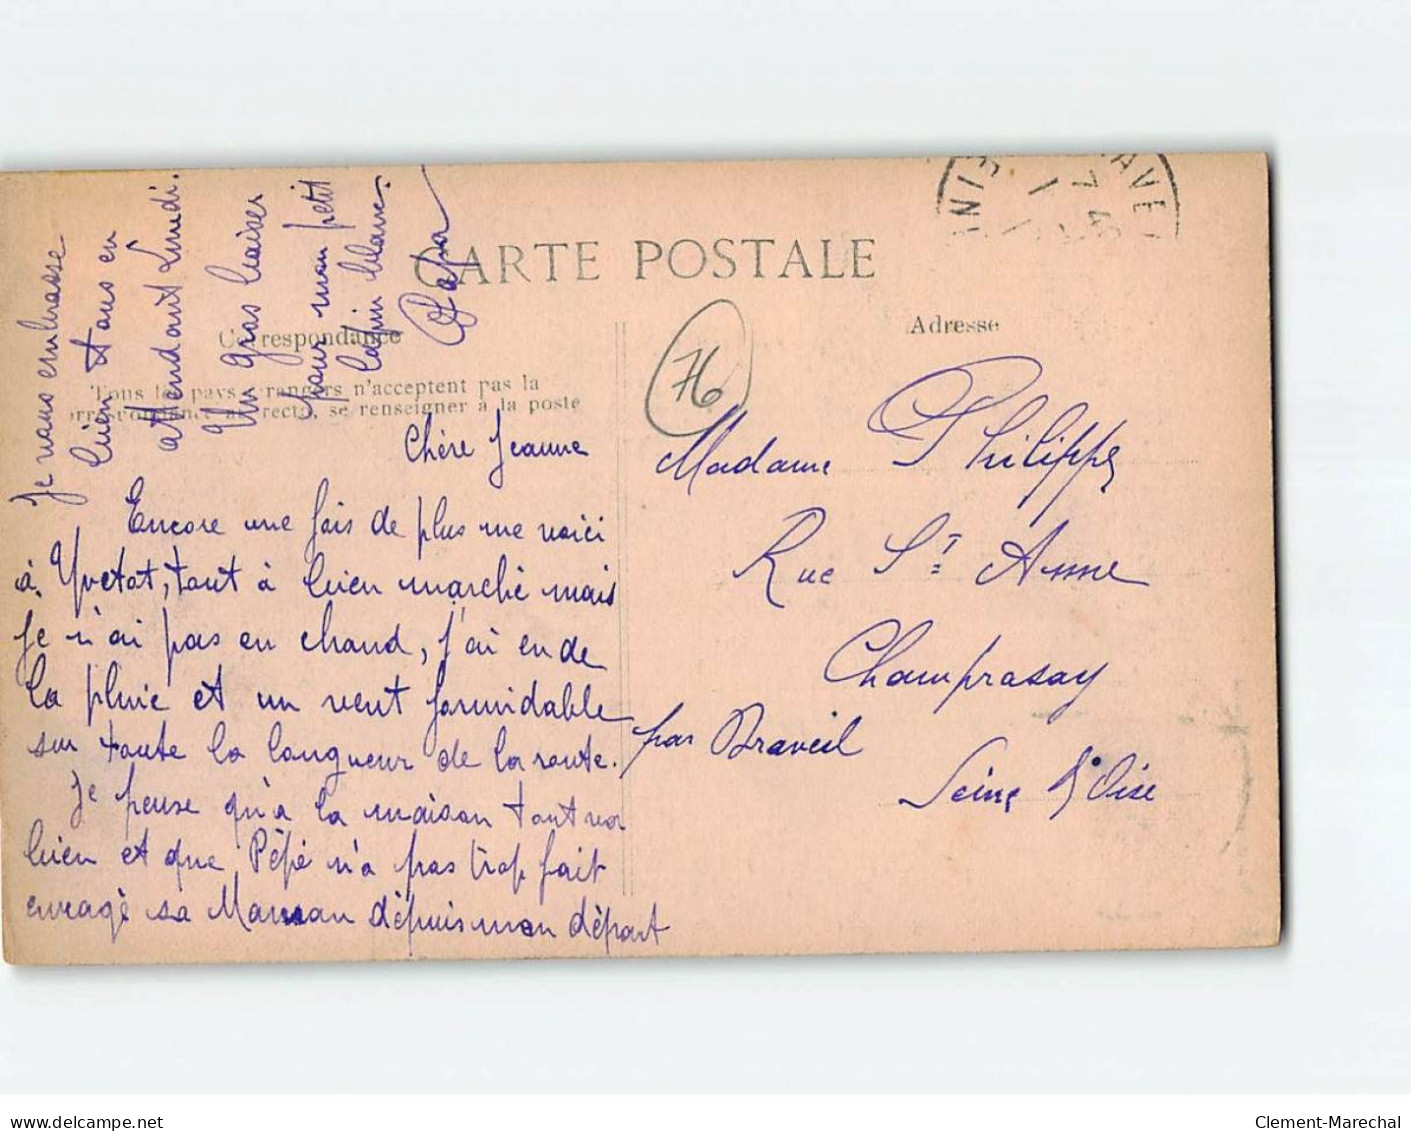 CARTE POSTALE
Correspondance
Tous les pays étrangers n'acceptent pas la
correspondance au recto, se renseigner à la poste
Adresse
76
Chère Jeanne
Encore une fois de plus me voici
à Yvetot, tout à bien marché mais
je n'ai pas eu chaud, j'ai eu de
la pluie et un vent formidable
sur toute la longueur de la route.
Je pense qu'à la maison tout va
bien et que Pépé n'a pas trop fait
enragé sa Maman dépuis mon départ
Je vous embrasse
bien tous en
attendant Lundi.
Un gros baiser
pour mon petit
lapin blanc.
Papa
Madame Philippe
Rue St Anne
Champrosay
par Draveil
Seine & Oise
delcampe.net
Clement-Marechal